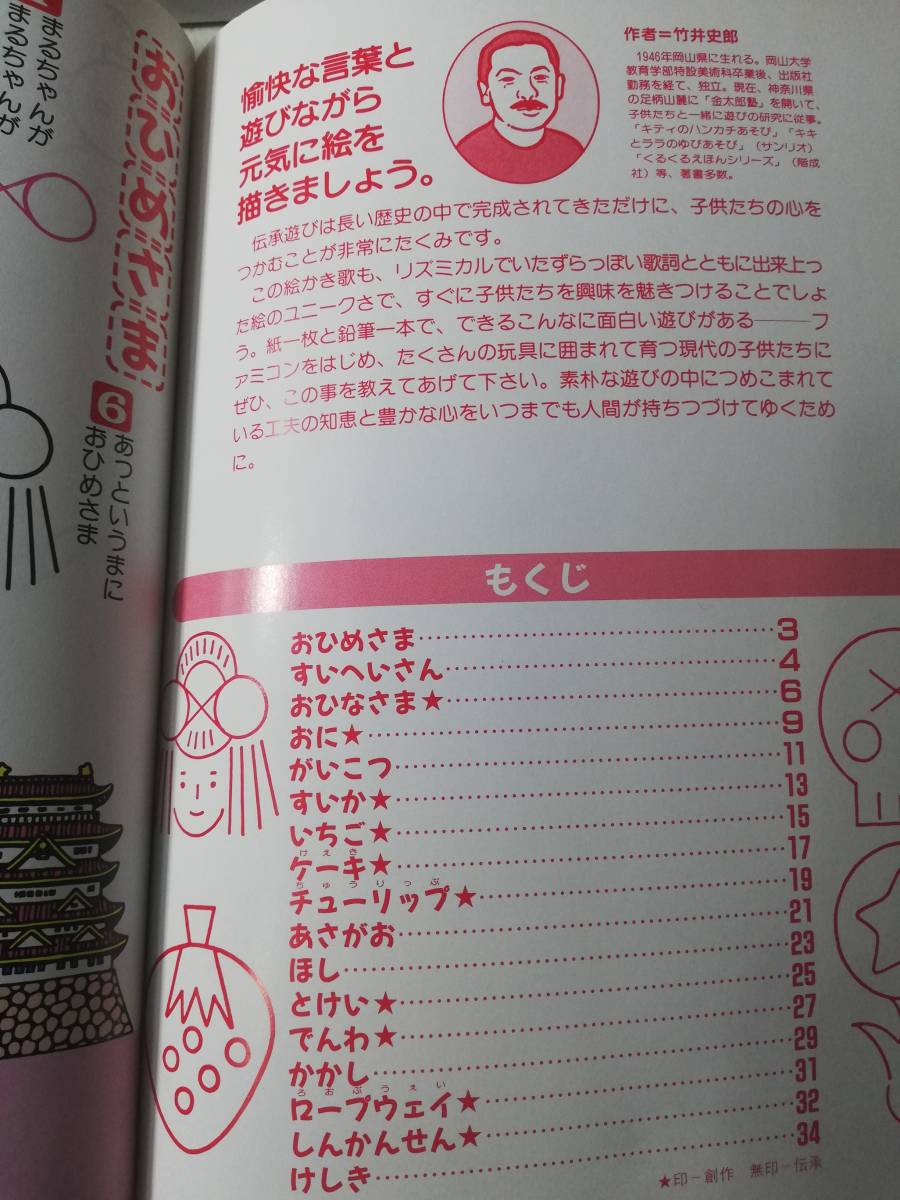 まるちゃんが
まるちゃんが
おひめさま
6
あっというまに
おひめさま
愉快な言葉と
遊びながら
元気に絵を
描きましょう。
作者=竹井史郎
1946年岡山県に生れる。岡山大学
教育学部特設美術科卒業後、出版社
勤務を経て、独立。現在、神奈川県
の足柄山麓に「金太郎塾」を開いて、
子供たちと一緒に遊びの研究に従事。
「キティのハンカチあそび」「キキ
とララのゆびあそび」（サンリオ）
「くるくるえほんシリーズ」（偕成
社）等、著書多数。
伝承遊びは長い歴史の中で完成されてきただけに、子供たちの心を
つかむことが非常にたくみです。
この絵かき歌も、リズミカルでいたずらっぽい歌詞とともに出来上っ
た絵のユニークさで、すぐに子供たちを興味を魅きつけることでしょ
う。紙一枚と鉛筆一本で、できるこんなに面白い遊びがある───フ
ァミコンをはじめ、たくさんの玩具に囲まれて育つ現代の子供たちに
ぜひ、この事を教えてあげて下さい。素朴な遊びの中につめこまれて
いる工夫の知恵と豊かな心をいつまでも人間が持ちつづけてゆくため
に。
もくじ
おひめさま 3
すいへいさん 4
おひなさま★ 6
おに★ 9
がいこつ 11
すいか★ 13
いちご★ 15
けえき
ケーキ★ 17
ちゅうりっぷ
チューリップ★ 19
あさがお 21
ほし 23
とけい★ 25
でんわ★ 27
かかし 29
ろおぷうぇい
ロープウェイ★ 31
しんかんせん★ 32
けしき 34
★印－創作 無印－伝承